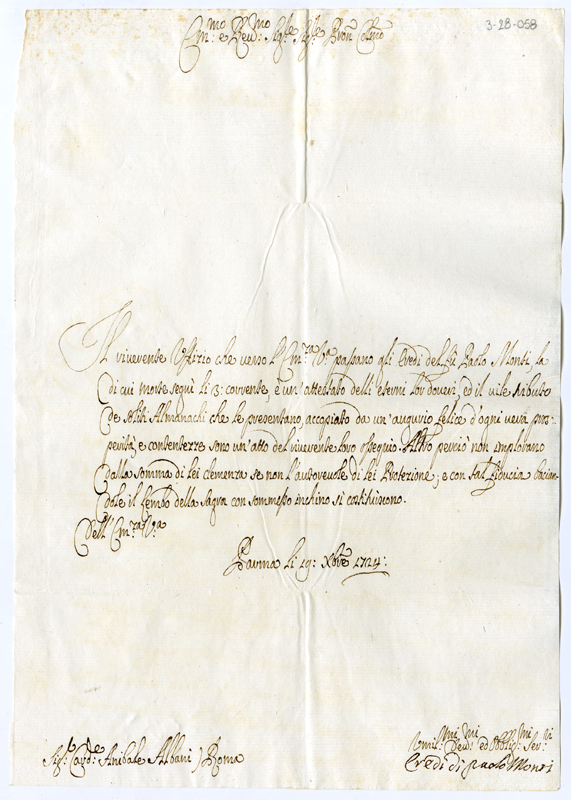 3-28-058
Em:mo e Rev:mo Sig:re Sig:re Pron Colmo
Il riverente Ufizio che verso l'Em:za V:a passano gli Eredi del fù Paolo Monti, la
di cui morte seguì li 3: corrente, è un'attestato delli eterni lor doveri, ed il vile tributo
de soliti Almanachi che le presentano, accopiato da un'augurio felice d'ogni vera pro-
sperità, e contentezze sono un'atto del riverente loro ossequio. Altro perciò non implorano
dalla somma di lei clemenza se non l'autorevole di lei Protezione; e con tal fiducia bacian-
dole il lembo della sagra con sommesso inchino si costituiscono.
Dell' Em:za V:a
Parma li 19: Xbre 1724:
Sig:r Card:le Anibale Albani ) Roma
Umil:mi Dev:mi ed Obblig:mi Ser:ri
Eredi di Paolo Monti